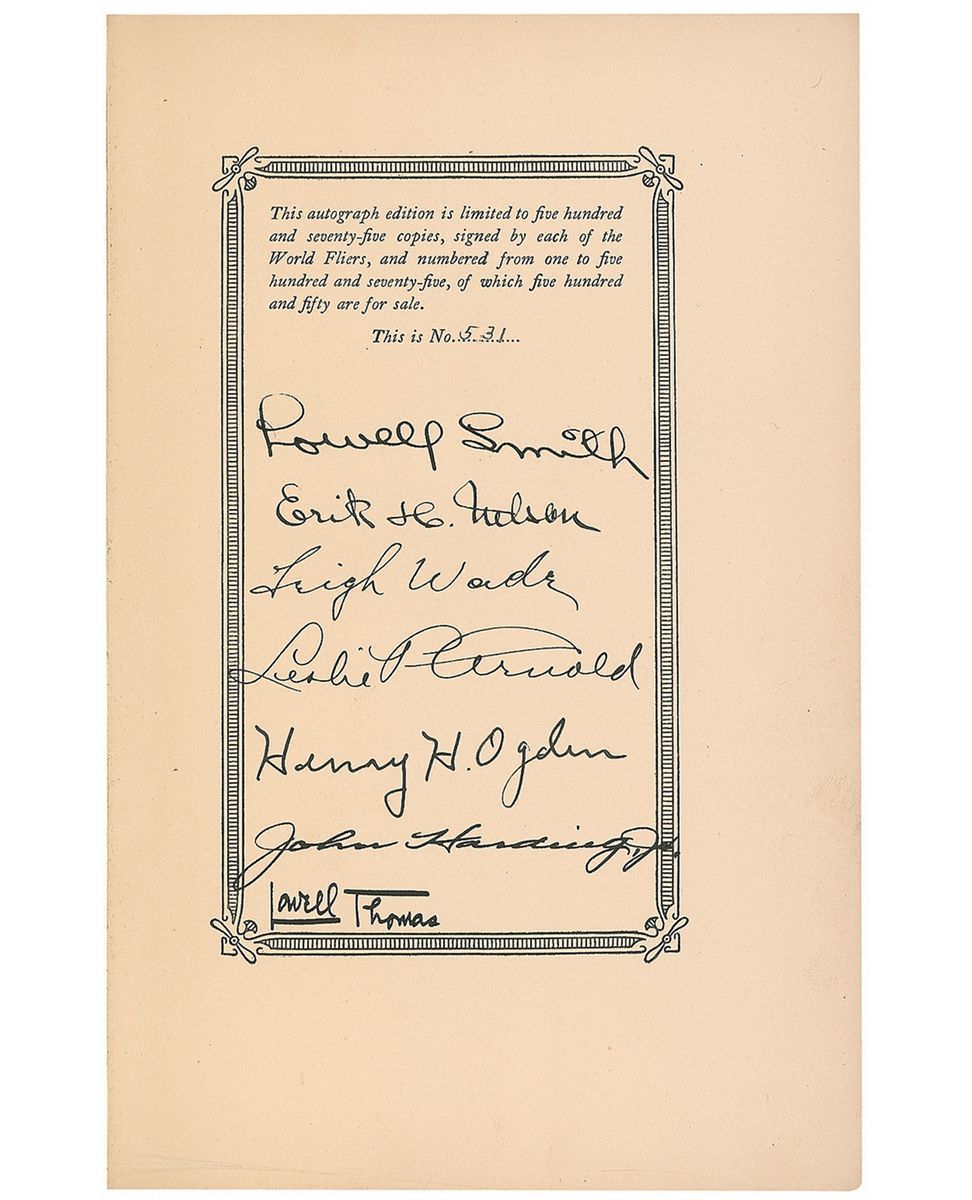 This autograph edition is limited to five hundred
and seventy-five copies, signed by each of the
World Fliers, and numbered from one to five
hundred and seventy-five, of which five hundred
and fifty are for sale.
This is No. 531
Lowell Smith
Erik H. Nelson
Leigh Wade
Leslie P. Arnold
Henry H. Ogden
John Harding, Jr.
Lowell Thomas